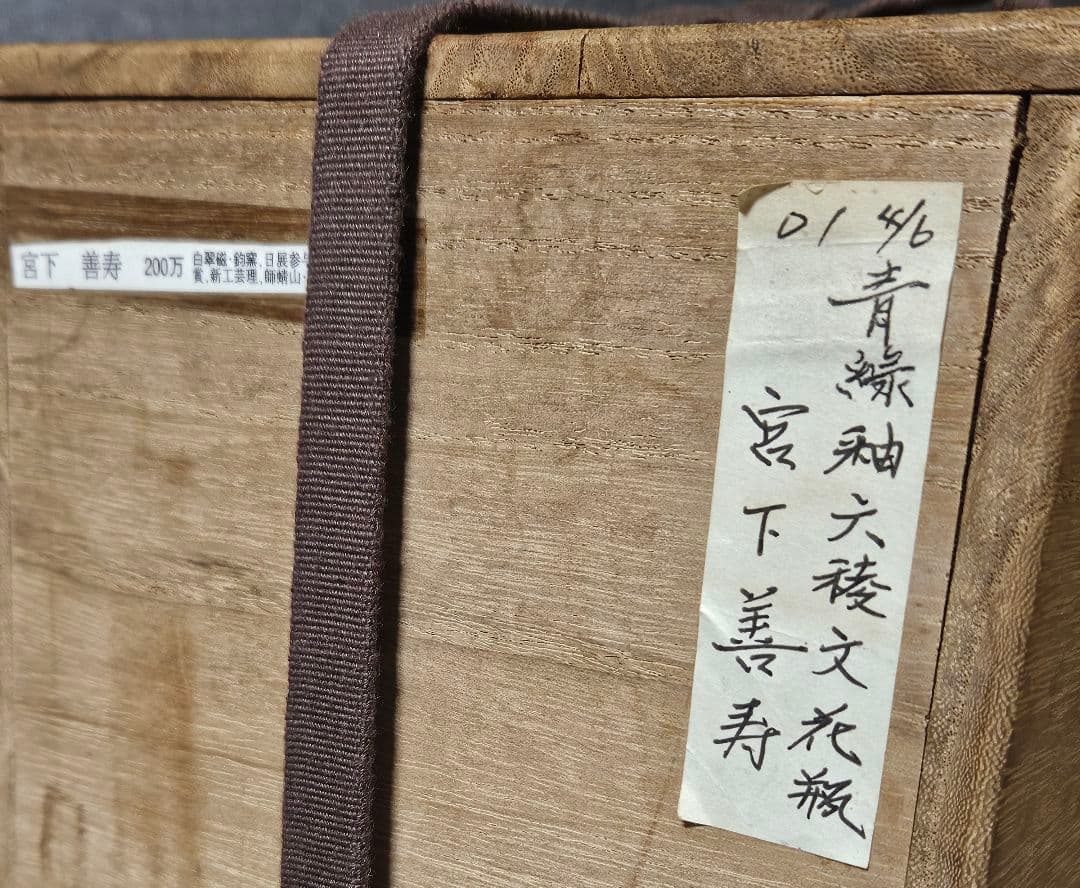 宮下 善寿 200万 白翠磁・鈞窯,日展参
賞,新工芸理,師蜻山
01 4/6
青緑釉六稜文花瓶
宮下善寿